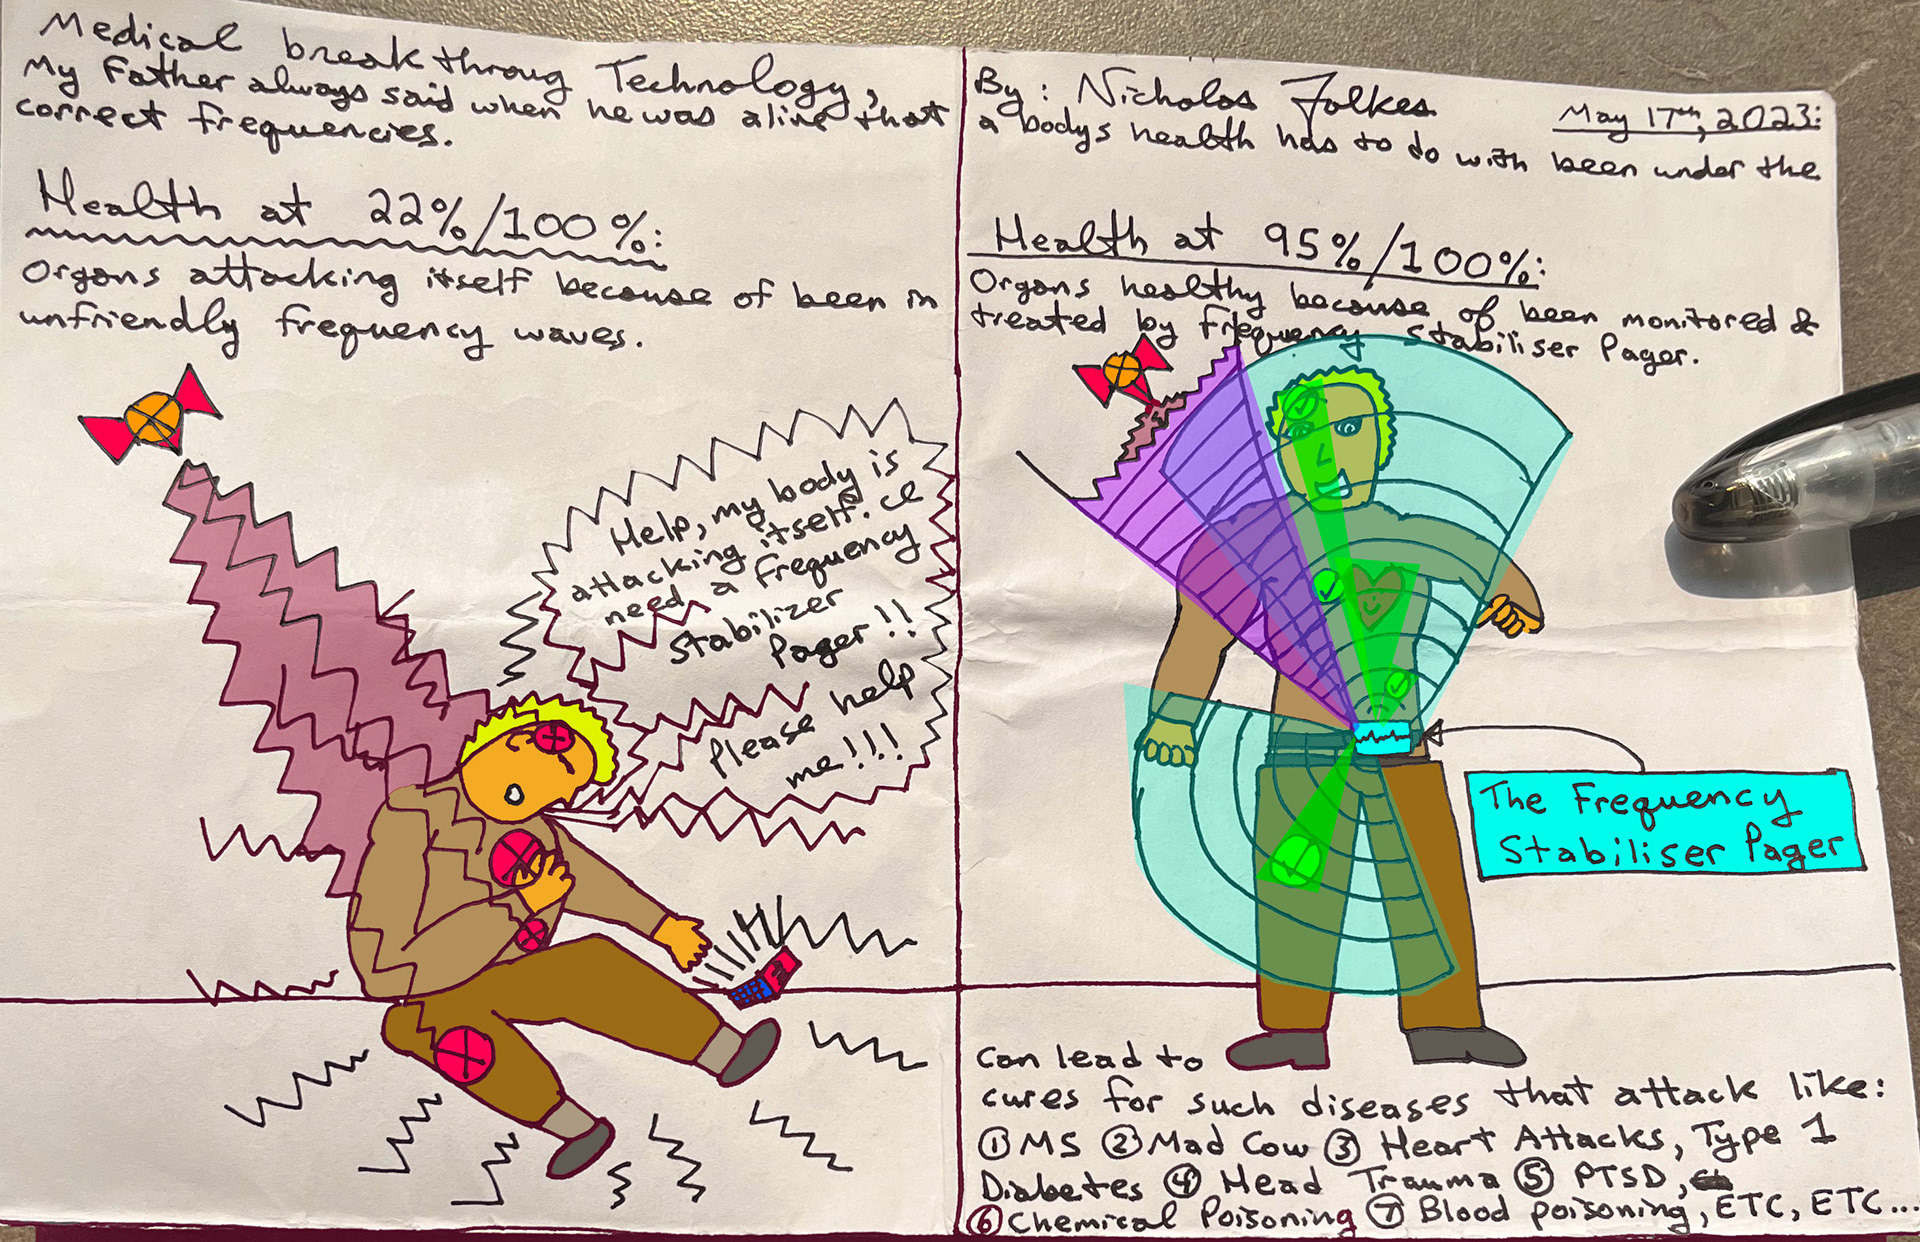 Medical breakthroug Technology,
My Father always said when he was alive that
correct frequencies.
Health at 22%/100%:
Organs attacking itself because of been in
unfriendly frequency waves.
Help, my body is
attacking itself. ce
need a Frequency
Stabilizer
Pager!!
Please help
me!!!
By: Nicholas Folkes
May 17th, 2023:
a bodys health has to do with been under the
Health at 95%/100%:
Organs healthy because of been monitored &
treated by Frequency Stabiliser Pager.
The Frequency
Stabiliser Pager
can lead to
cures for such diseases that attack like:
① MS ② Mad Cow ③ Heart Attacks, Type 1
Diabetes ④ Head Trauma ⑤ PTSD,
⑥ Chemical Poisoning ⑦ Blood poisoning, ETC, ETC...